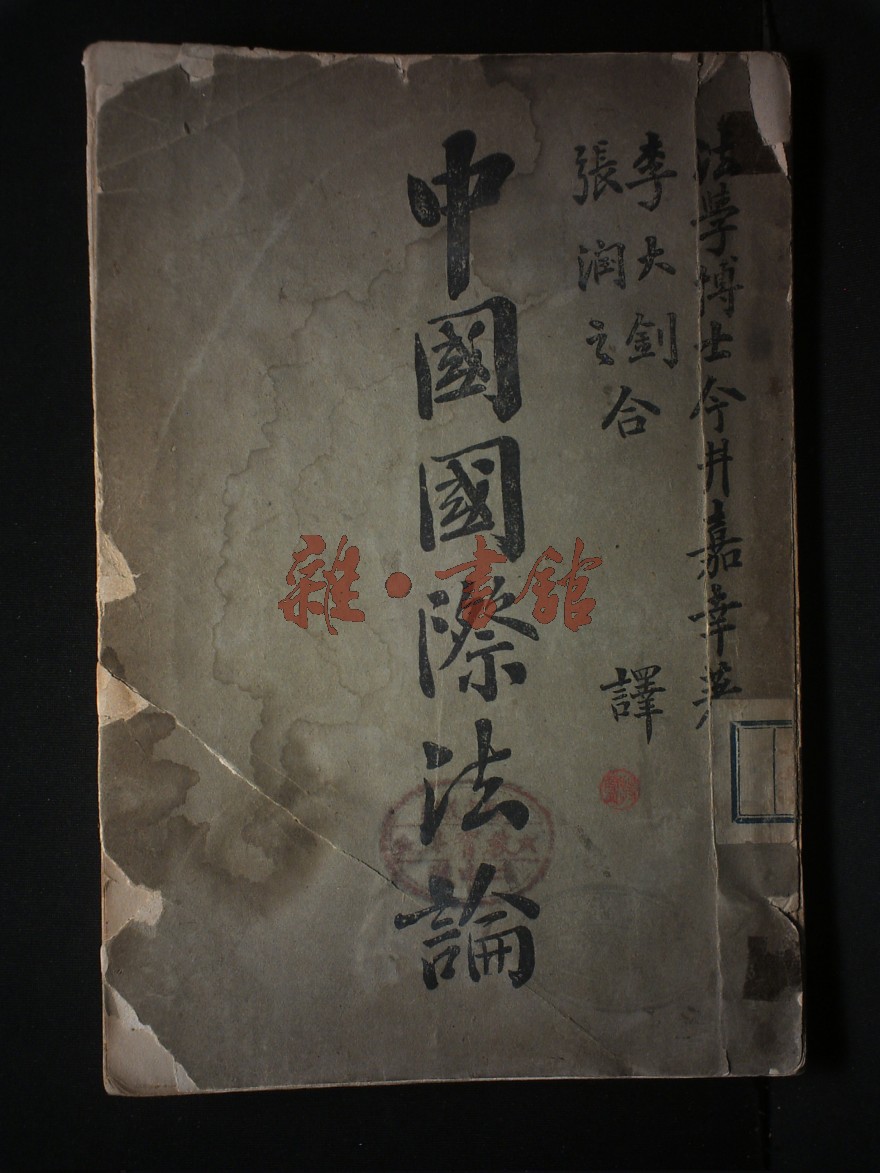 法學博士今井嘉幸著
李大釗
張润之
合譯
中國國際法論
雜·書館